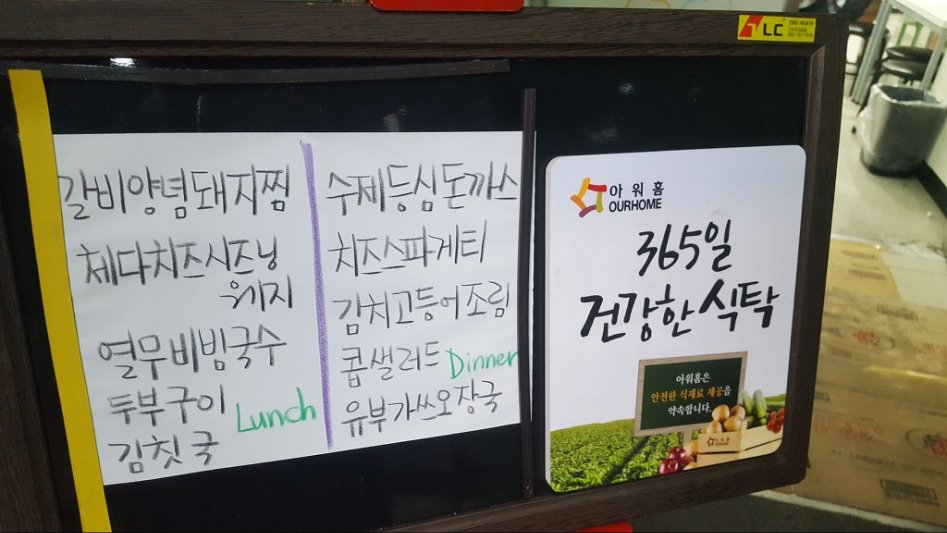 갈비양념돼지찜
체다치즈시즈닝
웨지
열무비빔국수
두부구이
Lunch
김칫국
수제등심돈까스
치즈스파게티
김치고등어조림
콥샐러드
Dinner
유부가쓰오장국
아워홈
OURHOME
365일
건강한식탁
아워홈은
안전한 식재료 제공을
약속합니다.
아워홈
OURHOME
LC
THE-MOON